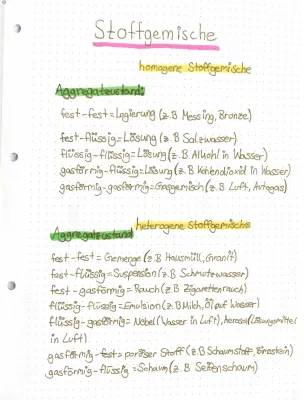 Stoffgemische
homogene Stoffgemische
Aggregatzustand:
fest-fest=Legierung (z.B Messing, Bronze)
fest-flüssig=Lösung (z.B Salzwasser)
flüssig-flüssig=Lösung (z.B Alkohol in Wasser)
gasförmig-flüssig=Lösung (z.B Kohlendioxid in Wasser)
gasförmig-gasförmig=Gasgemisch (z.B Luft, Autogas)
heterogene Stoffgemische
Aggregatzustand
fest-fest= Gemenge (z.B Hausmüll, Granit)
fest-flüssig= Suspension (z.B Schmutzwasser)
fest-gasförmig=Rauch (z.B Zigarettenrauch)
flüssig-flüssig=Emulsion (z.B Milch, Öl auf Wasser)
flüssig-gasförmig= Nebel (Wasser in Luft), Aerosol (Lösungsmittel
in Luft)
gasförmig-fest=poröser Stoff (z.B Schaumstoff, Bimsstein)
gasförmig-flüssig=Schaum (z.B Seifenschaum)